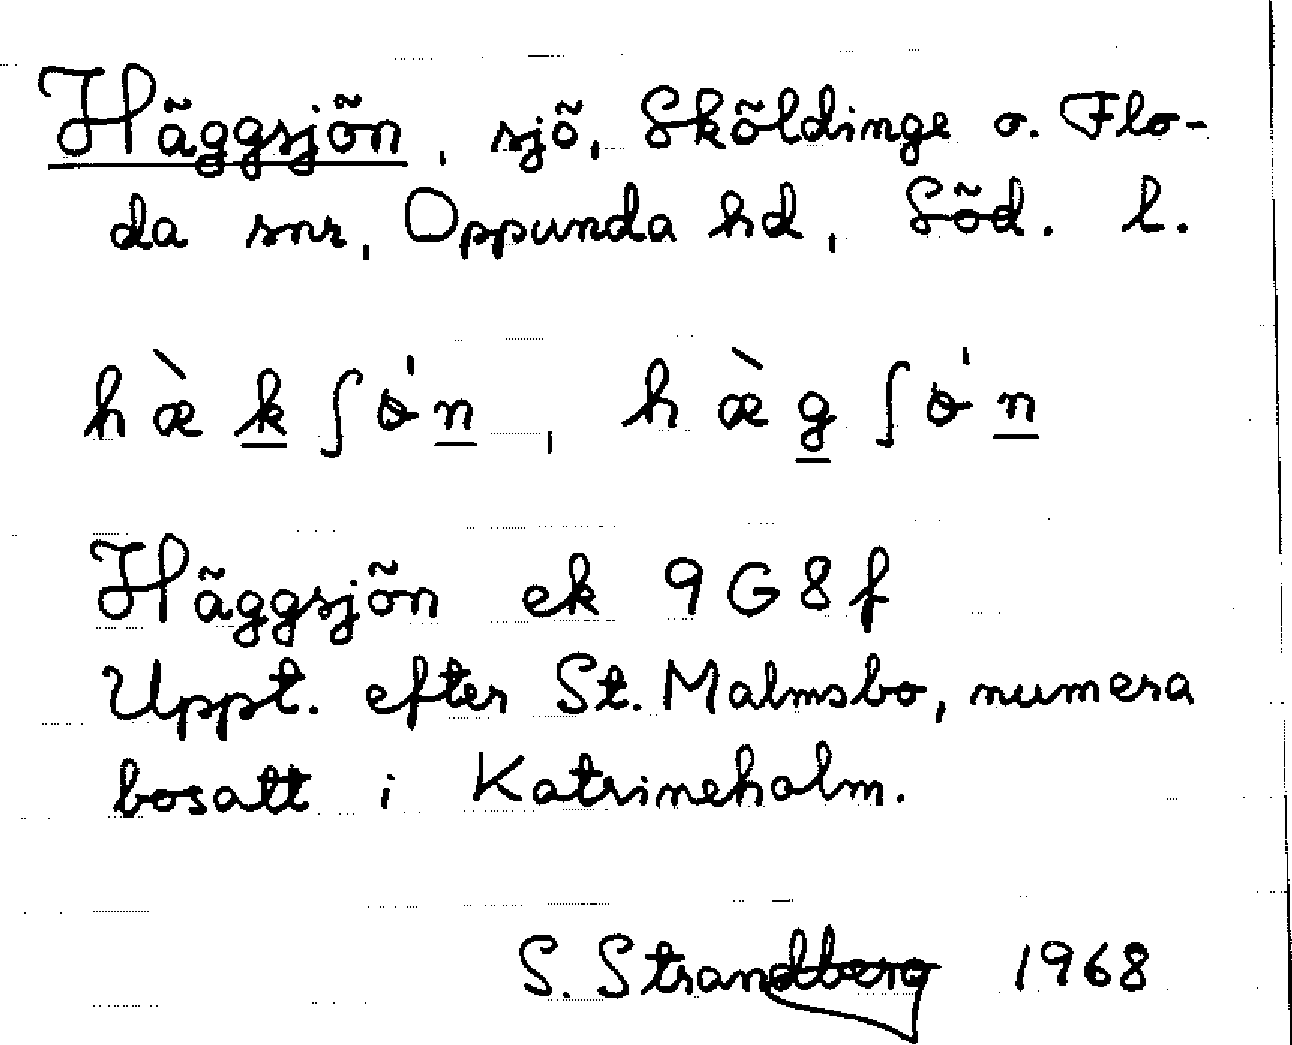 Häggsjön, sjö, Sköldinge o. Flo-
da snr, Oppunda hd, Söd. l.
hæ̀kʃɵ̍n, hæ̀gʃɵ̍n
Häggsjön ek 9G8f
Uppt. efter St. Malmsbo, numera
bosatt i Katrineholm.
S. Strandberg 1968